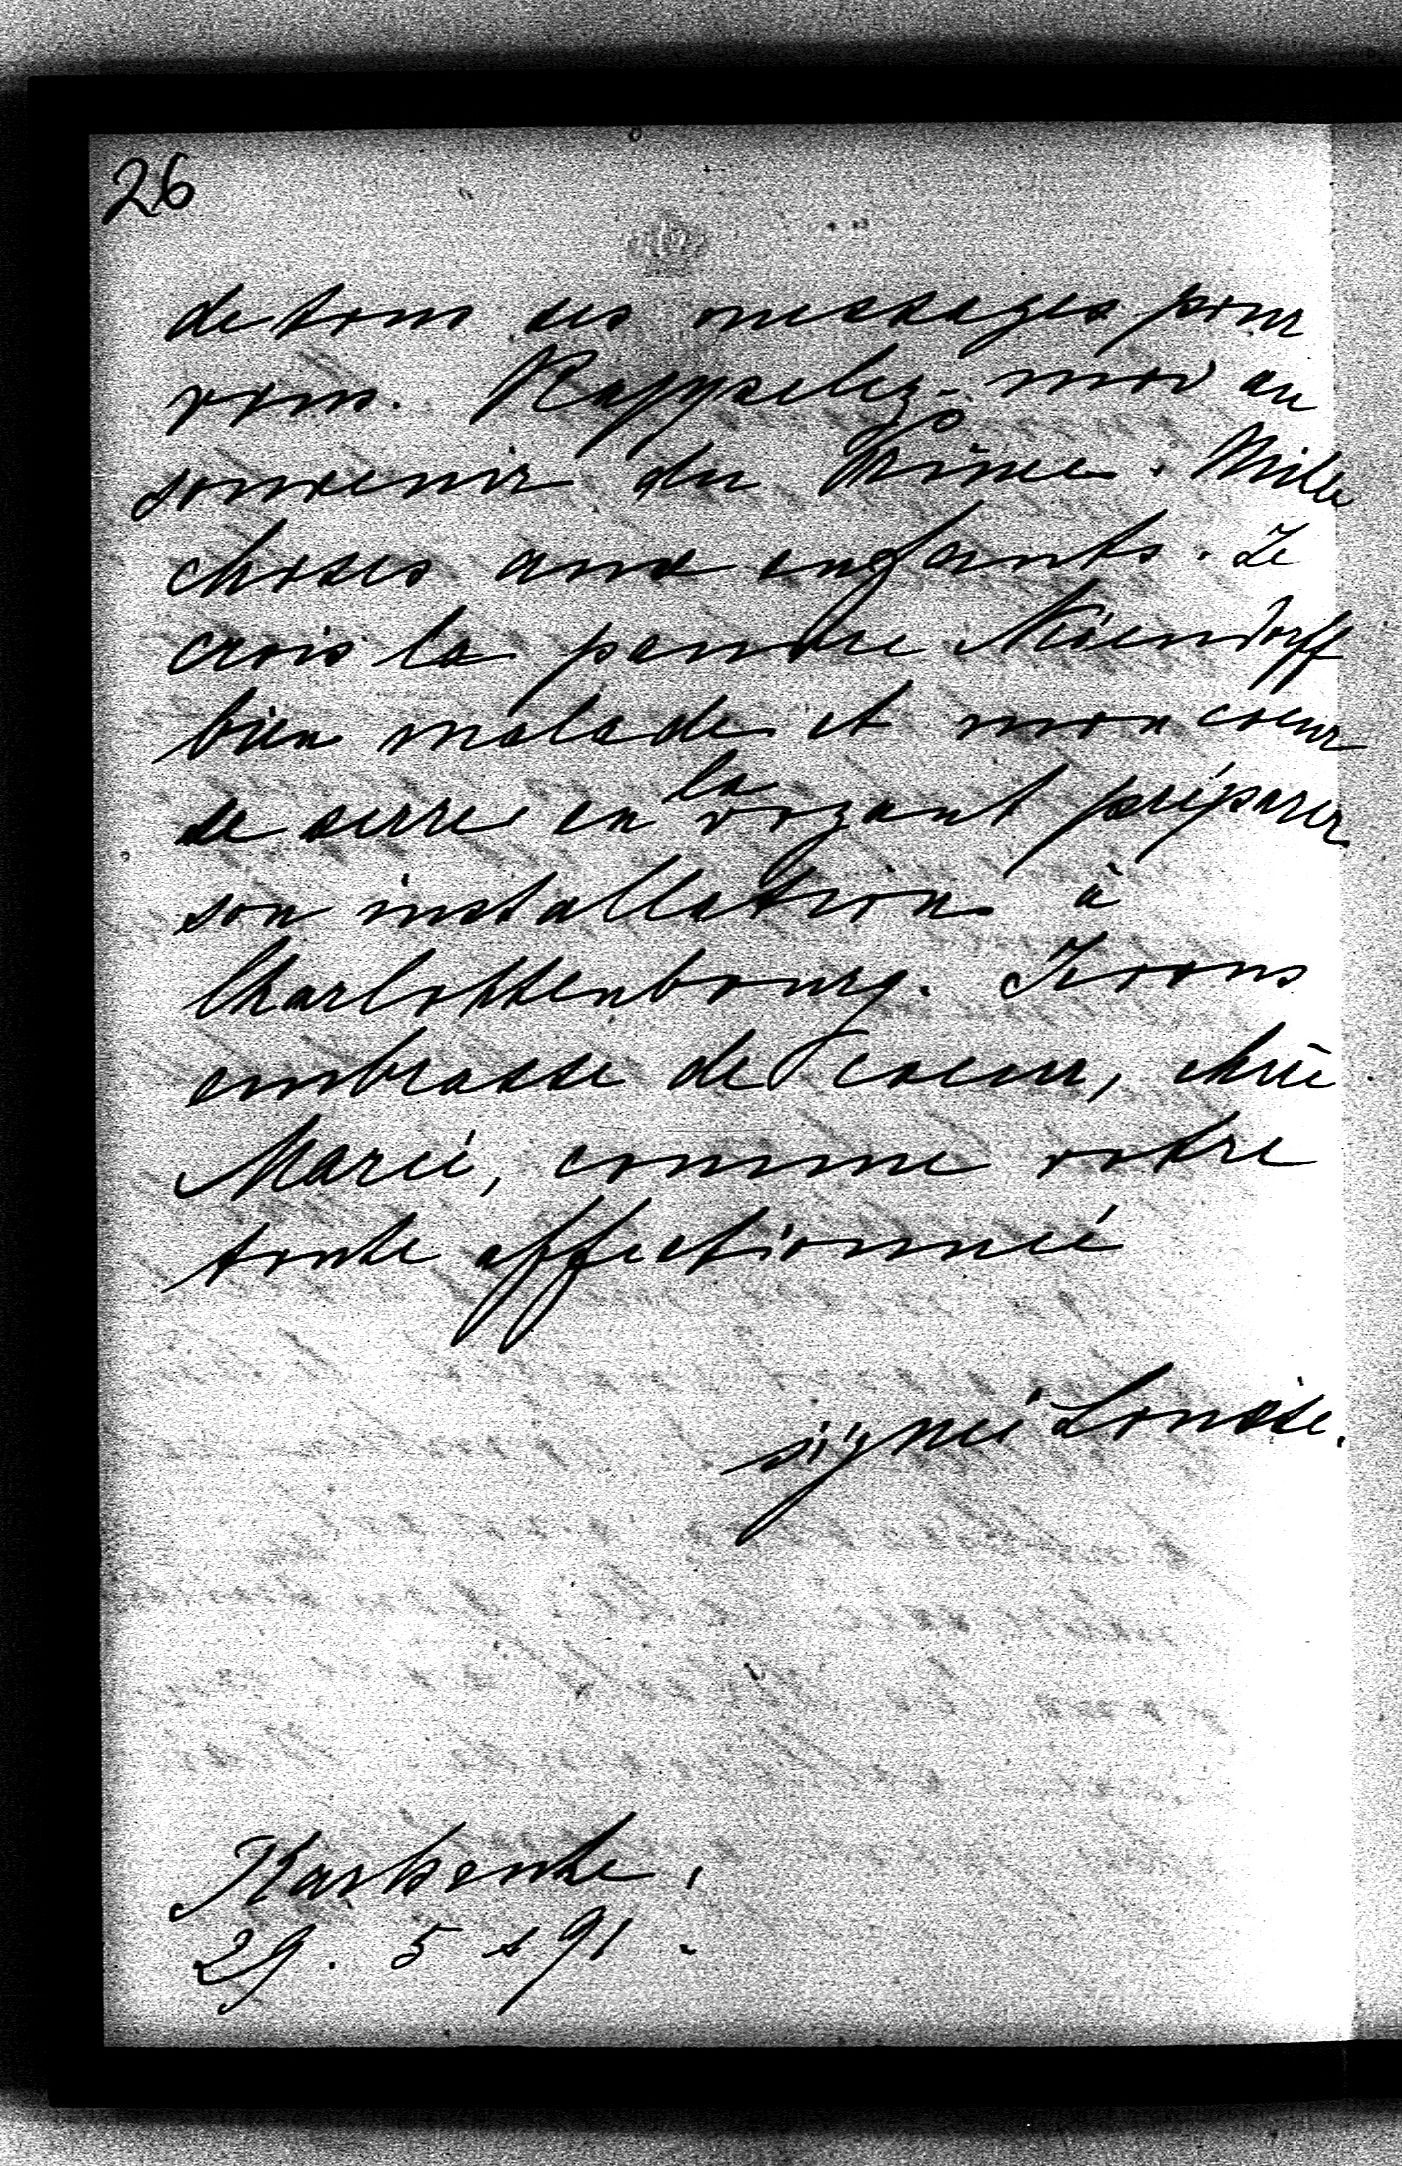 26
de tous ses messages pour
vous. Rappelez-moi au
souvenir du Prince. Mille
choses aux enfants. Je
crois la pauvre
bien malade et mon coeur
se serre en la voyant préparer
son installation à
Charlottenbourg. Je vous
embrasse de coeur, chère
Marie, comme votre
toute affectionnée
signé Louise.
Karlsruhe,
29. 5 91.